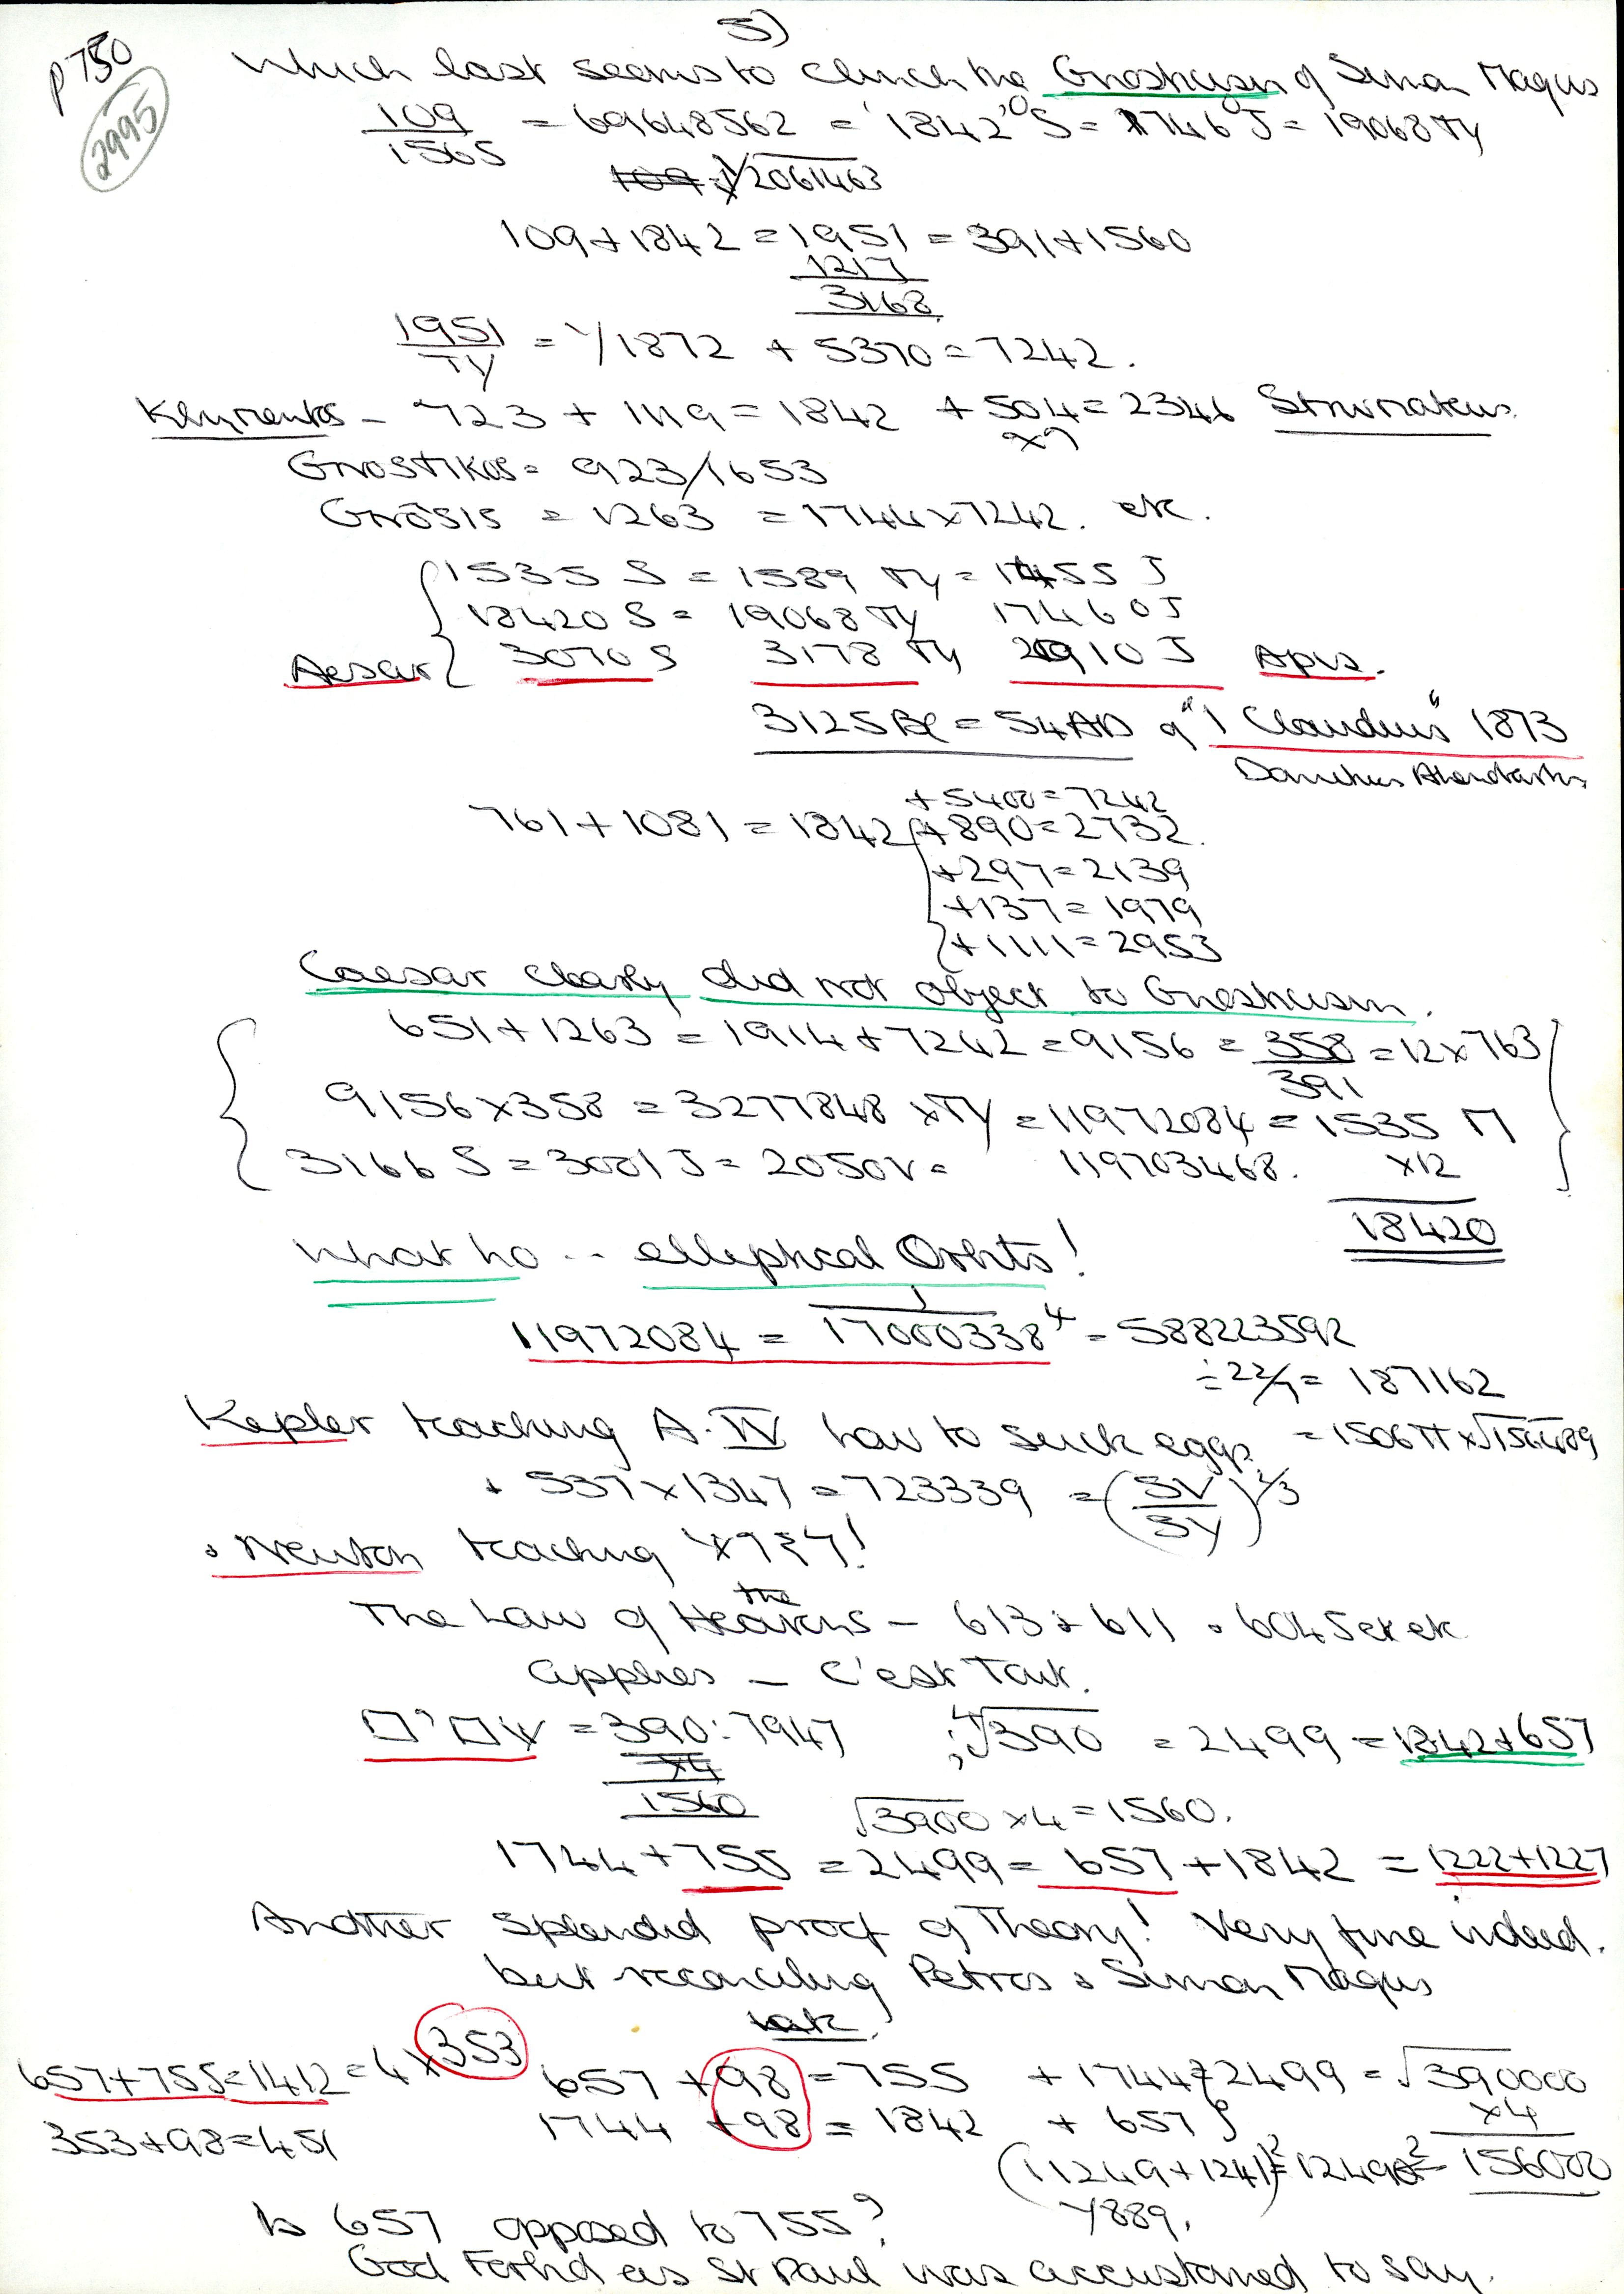 5)
P750
2995
Which last seems to clinch the Gnosticism of Simon Magus
109/1565 = 69648562 = 18420 S = 17460 J = 19068 TY
109 = 1/2061463
109 + 1842 = 1951 = 391 + 1560
1217
3168
1951/TY = Y1872 + 5370 = 7242.
Klymentos - 723 + 1119 = 1842 + 504 = 2346 Stromateus.
x7
GNOSTIKOS = 923/1653
GNŌSIS = 1263 = 1744 x 7242. etc.
1535 S = 1589 TY = 1455 J
18420 S = 19068 TY 17460 J
Aesar 3070 S 3178 TY 2910 J Apis.
3125 BC = 54 AD of "I Claudius" 1873
+ 5400 = 7242
761 + 1081 = 1842 + 890 = 2732.
+ 297 = 2139
+ 137 = 1979
+ 1111 = 2953
Caesar clearly did not object to Gnosticism.
651 + 1263 = 1914 + 7242 = 9156 = 358/391 = 12 x 763
9156 x 358 = 3277848 x TY = 11972084 = 1535 M
3166 S = 3001 J = 2050 V = 119703468. x12
18420
What ho .. elliptical Orbits!
11972084 = 17000338⁴ = 588223592
÷ 22/7 = 187162
Kepler teaching A. IV how to suck eggs = 1506 π x √156489
+ 537 x 1347 = 723339 = (SV/SY)^2/3
. Newton teaching
The Law of the Heavens - 613 + 611 . 604 S etc etc
applies - C'est Tout.
= 390 : 7947 ; ⁴√390 = 2499 = 1842 + 657
x4
1560 √3900 x 4 = 1560.
1744 + 755 = 2499 = 657 + 1842 = 1222 + 1227
Another splendid proof of Theory! Very fine indeed.
but reconciling Petros & Simon Magus
657 + 755 = 1412 = 4 x 353 657 + 98 = 755 + 1744 = 2499 = √390000
353 + 98 = 451 1744 + 98 = 1842 + 657 x4
(11249 + 1241)² = 12490² = 156000
Y889.
Is 657 opposed to 755?
God Forbid as St Paul was accustomed to say.